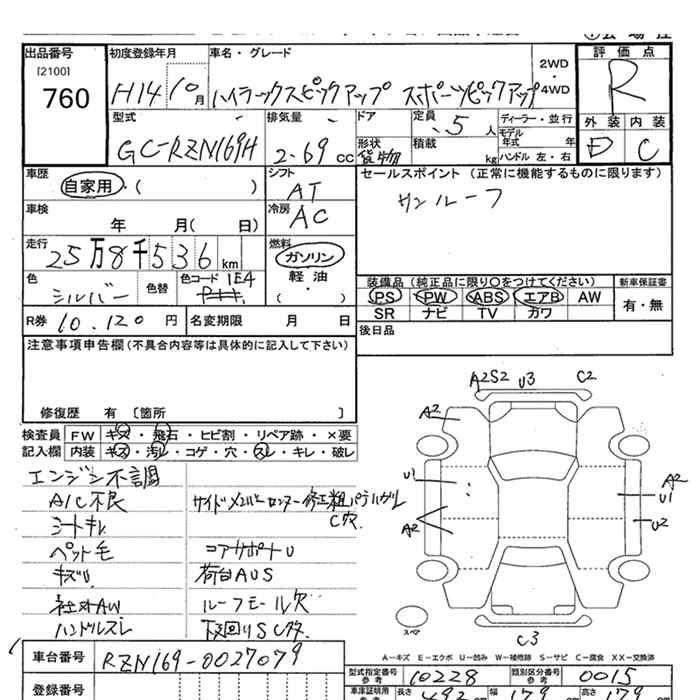 出品番号
[2100]
760
初度登録年月
H14 10月
車名・グレード
ハイラックスピックアップ スポーツピックアップ
2WD・4WD
評価点
R
外装 内装
E C
型式
GC-RZN169H
排気量
2.69 cc
ドア
形状
貨物
定員
5 人
積載
kg
ディーラー・並行
モデル年式 年
ハンドル 左・右
車歴
自家用・( )
シフト
AT
車検
年 月( 日)
冷房
AC
走行
25万8千536 km
燃料
ガソリン
軽・油
( ・ )
色
シルバー
色替
色コード 1E4
R券 10,120 円
名変期限 月 日
セールスポイント (正常に機能するものに限ります)
サンルーフ
装備品 (純正品に限り○をつけてください)
新車保証書
PS PW ABS エアB AW
有・無
SR ナビ TV カワ
後日品
注意事項申告欄(不具合内容等は具体的に記入して下さい)
修復歴 有 〔箇所 〕
検査員 FW キズ・飛石・ヒビ割・リペア跡・×要
記入欄 内装 キズ・汚レ・コゲ・穴・スレ・キレ・破レ
エンジン不調
A/C不良
シートキレ
ペット毛
キズU
社外AW
ハンドルスレ
コアサポートU
荷台AUS
ルーフモール欠
下回りSC大
A2S2 U3 C2
A2
U1
A2
A2
U1
U2
スペア
C3
A−キズ E−エクボ U−凹み W−補修跡 S−サビ C−腐食 XX−交換済
車台番号 RZN169-0027079
登録番号
型式指定番号 参考 10228
類別区分番号 参考 0015
車庫証明用 参考 長さ 492 幅 179 高さ 179